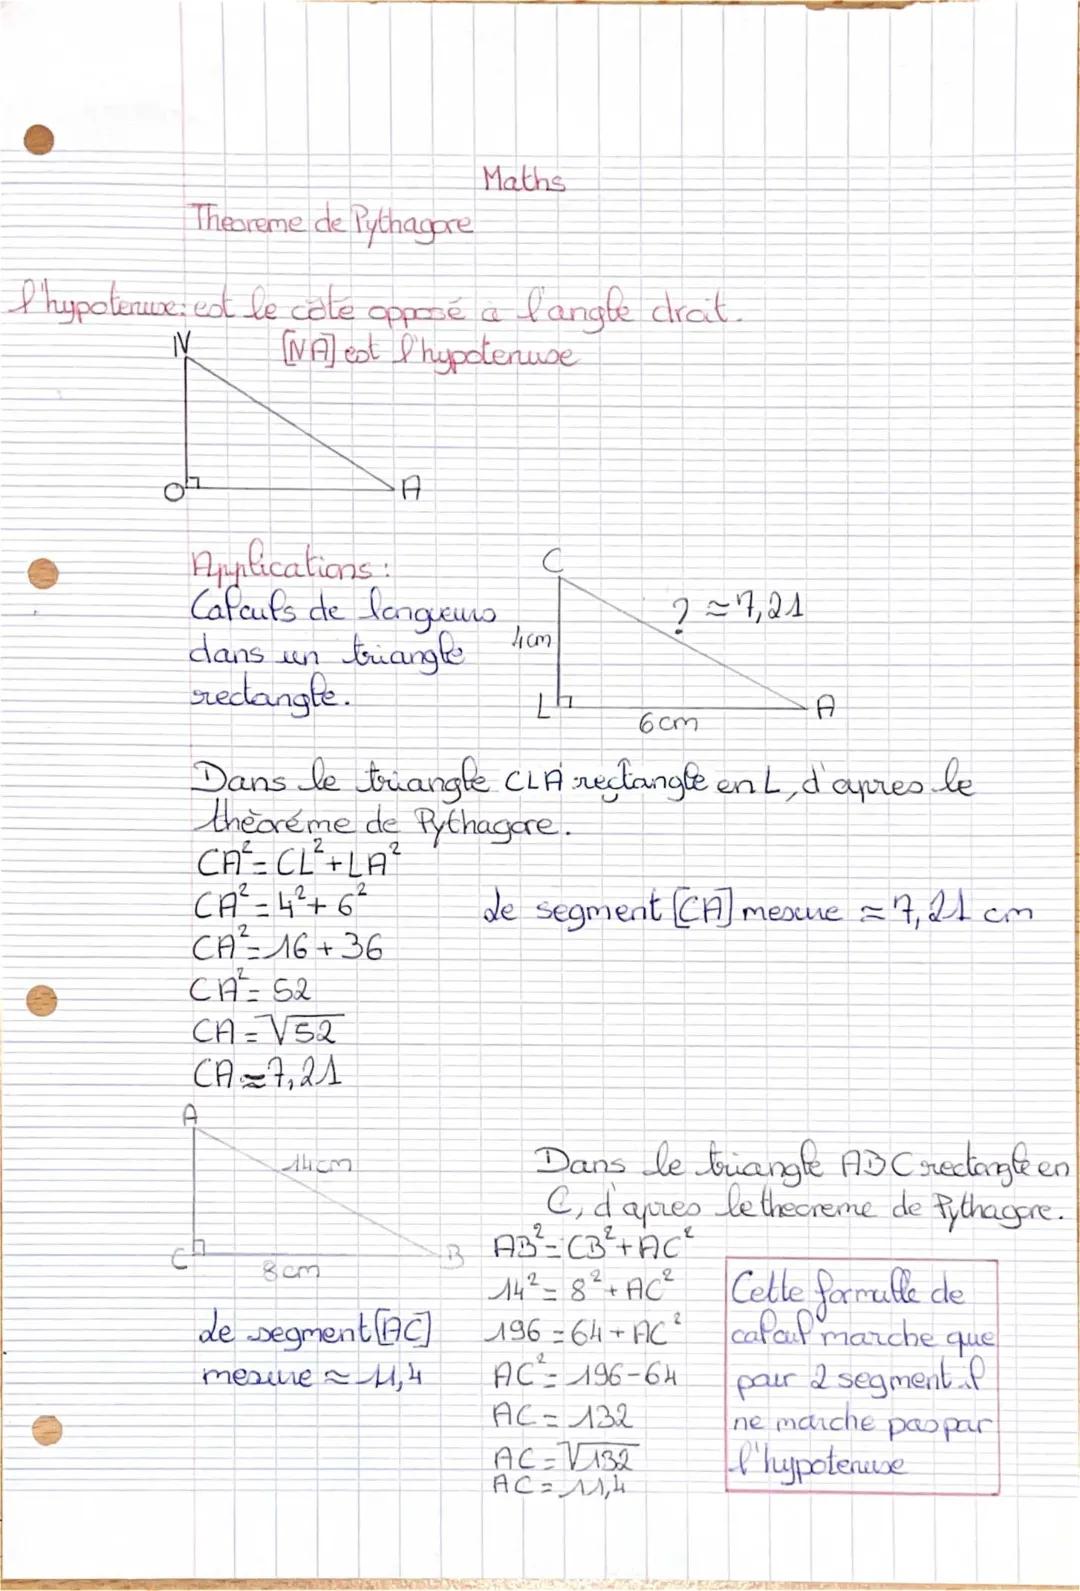 Maths
Theoreme de Pythagore
l'hypotenuse: est le côté opposé à l'angle droit.
N
[NA] est l'hypotenuse
O
A
Applications :
Calculs de longueurs
dans un triangle
rectangle.
C
? ≈ 7,21
4cm
L
6cm
A
Dans le triangle CLA rectangle en L, d'apres le
théoréme de Pythagore.
CA² = CL² + LA²
CA² = 4² + 6²
CA² = 16 + 36
CA² = 52
CA = √52
CA ≈ 7,21
Le segment [CA] mesure ≈ 7,21 cm
A
14cm
C
8cm
B
Le segment [AC]
mesure ≈ 11,4
Dans le triangle ABC rectangle en
C, d'apres le theoreme de Pythagore.
AB² = CB² + AC²
14² = 8² + AC²
196 = 64 + AC²
AC² = 196-64
AC = 132
AC = √132
AC = 11,4
Cette formulle de
calcul marche que
pour 2 segment il
ne marche pas par
l'hypotenuse